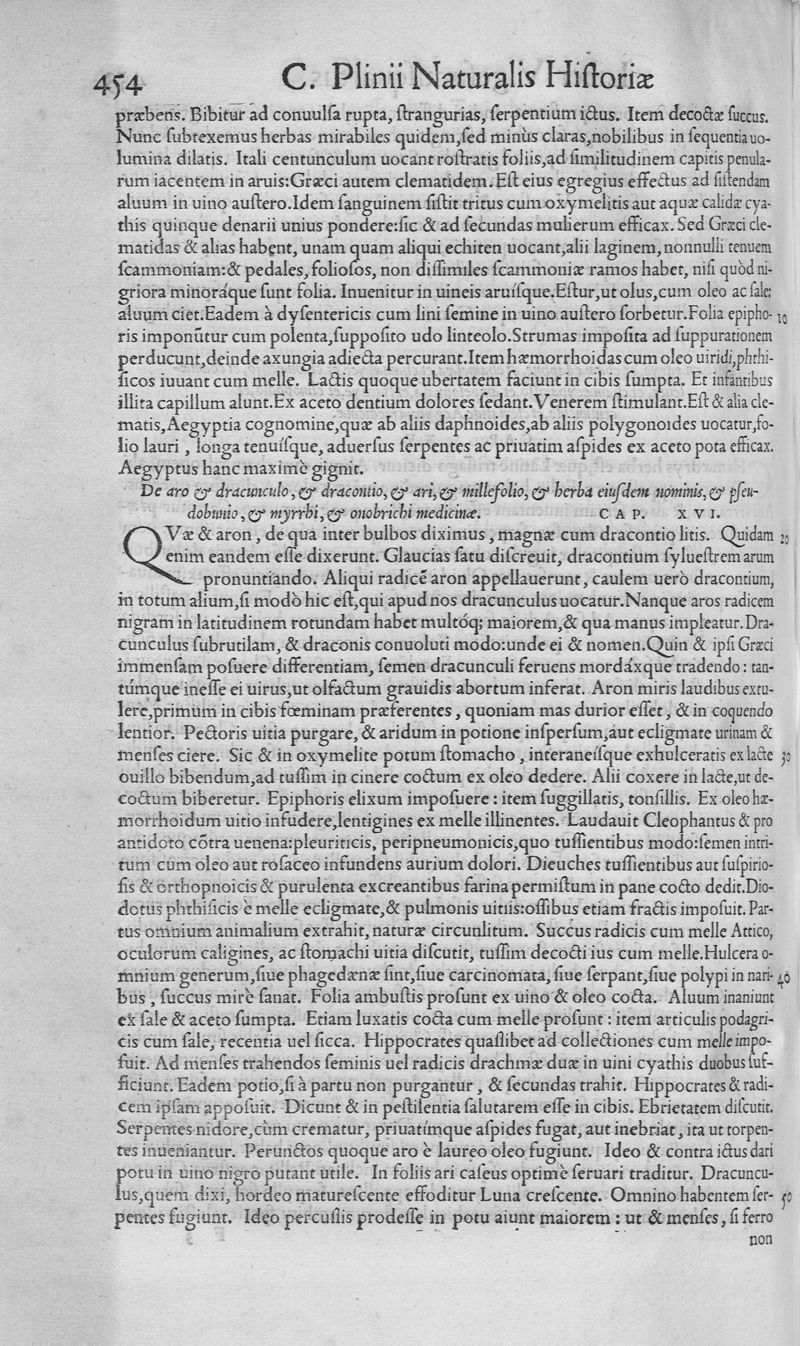 454 C. Plinii Naturalis Hiſtoriæ
præbens. Bibitur ad conuulſa rupta, ſtrangurias, ſerpentium ictus. Item decoctæ ſuccus.
Nunc ſubtexemus herbas mirabiles quidem,ſed minùs claras,nobilibus in ſequentia uo-
lumina dilatis. Itali centunculum uocant roſtratis foliis,ad ſimilitudinem capitis penula-
rum iacentem in aruis:Græci autem clematidem. Eſt eius egregius effectus ad ſiſtendam
aluum in uino auſtero.Idem ſanguinem ſiſtit tritus cum oxymelitis aut aquæ calidæ cya-
this quinque denarii unius pondere:ſic & ad ſecundas mulierum efficax. Sed Græci cle-
matidas & alias habent, unam quam aliqui echiten uocant,alii laginem, nonnulli tenuem
ſcammoniam:& pedales, folioſos, non diſſimiles ſcammoniæ ramos habet, niſi quòd ni-
griora minoráque ſunt folia. Inuenitur in uineis aruíſque.Eſtur,ut olus,cum oleo ac ſale:
aluum ciet.Eadem à dyſentericis cum lini ſemine in uino auſtero ſorbetur.Folia epipho- 10
ris imponūtur cum polenta,ſuppoſito udo linteolo.Strumas impoſita ad ſuppurationem
perducunt,deinde axungia adiecta percurant.Item hæmorrhoidas cum oleo uiridi,phthi-
ſicos iuuant cum melle. Lactis quoque ubertatem faciunt in cibis ſumpta. Et infantibus
illita capillum alunt.Ex aceto dentium dolores ſedant.Venerem ſtimulant.Eſt & alia cle-
matis,Aegyptia cognomine,quæ ab aliis daphnoides,ab aliis polygonoides uocatur,fo-
lio lauri , longa tenuíſque, aduerſus ſerpentes ac priuatim aſpides ex aceto pota efficax.
Aegyptus hanc maximè gignit.
De aro & dracunculo, & dracontio, & ari, & millefolio, & herba eiuſdem nominis, & pſeu-
dobunio, & myrrhi, & onobrichi medicinæ. CAP. XVI.
QVæ & aron , de qua inter bulbos diximus , magnæ cum dracontio litis. Quidam 20
enim eandem eſſe dixerunt. Glaucias ſatu diſcreuit, dracontium ſylueſtrem arum
pronuntiando. Aliqui radicē aron appellauerunt, caulem uerò dracontium,
in totum alium,ſi modò hic eſt,qui apud nos dracunculus uocatur.Nanque aros radicem
nigram in latitudinem rotundam habet multóq; maiorem,& qua manus impleatur.Dra-
cunculus ſubrutilam, & draconis conuoluti modo:unde ei & nomen.Quin & ipſi Græci
immenſam poſuere differentiam, ſemen dracunculi feruens mordáxque tradendo : tan-
túmque ineſſe ei uirus,ut olfactum grauidis abortum inferat. Aron miris laudibus extu-
lere,primùm in cibis fœminam præferentes , quoniam mas durior eſſet , & in coquendo
lentior. Pectoris uitia purgare, & aridum in potione inſperſum,aut ecligmate urinam &
menſes ciere. Sic & in oxymelite potum ſtomacho , interaneíſque exhulceratis ex lacte 30
ouillo bibendum,ad tuſſim in cinere coctum ex oleo dedere. Alii coxere in lacte,ut de-
coctum biberetur. Epiphoris elixum impoſuere : item ſuggillatis, tonſillis. Ex oleo hæ-
morrhoidum uitio infudere,lentigines ex melle illinentes. Laudauit Cleophantus & pro
antidoto cōtra uenena:pleuriticis, peripneumonicis,quo tuſſientibus modo:ſemen intri-
tum cum oleo aut roſaceo infundens aurium dolori. Dieuches tuſſientibus aut ſuſpirio-
ſis & orthopnoicis & purulenta excreantibus farina permiſtum in pane cocto dedit.Dio-
dotus phthiſicis è melle ecligmate,& pulmonis uitiis:oſſibus etiam fractis impoſuit. Par-
tus omnium animalium extrahit, naturæ circunlitum. Succus radicis cum melle Attico,
oculorum caligines, ac ſtomachi uitia diſcutit, tuſſim decocti ius cum melle.Hulcera o-
mnium generum,ſiue phagedænæ ſint,ſiue carcinomata, ſiue ſerpant,ſiue polypi in nari- 40
bus , ſuccus mirè ſanat. Folia ambuſtis proſunt ex uino & oleo cocta. Aluum inaniunt
ex ſale & aceto ſumpta. Etiam luxatis cocta cum melle proſunt : item articulis podagri-
cis cum ſale, recentia uel ſicca. Hippocrates quaſlibet ad collectiones cum melle impo-
ſuit. Ad menſes trahendos ſeminis uel radicis drachmæ duæ in uini cyathis duobus ſuf-
ficiunt. Eadem potio,ſi à partu non purgantur , & ſecundas trahit. Hippocrates & radi-
cem ipſam appoſuit. Dicunt & in peſtilentia ſalutarem eſſe in cibis. Ebrietatem diſcutit.
Serpentes nidore,cùm crematur, priuatímque aſpides fugat, aut inebriat, ita ut torpen-
tes inueniantur. Perunctos quoque aro è laureo oleo fugiunt. Ideo & contra ictus dari
potu in uino nigro putant utile. In foliis ari caſeus optimè ſeruari traditur. Dracuncu-
lus,quem dixi, hordeo matureſcente effoditur Luna creſcente. Omnino habentem ſer- 50
pentes fugiunt. Ideo percuſſis prodeſſe in potu aiunt maiorem : ut & menſes, ſi ferro
non